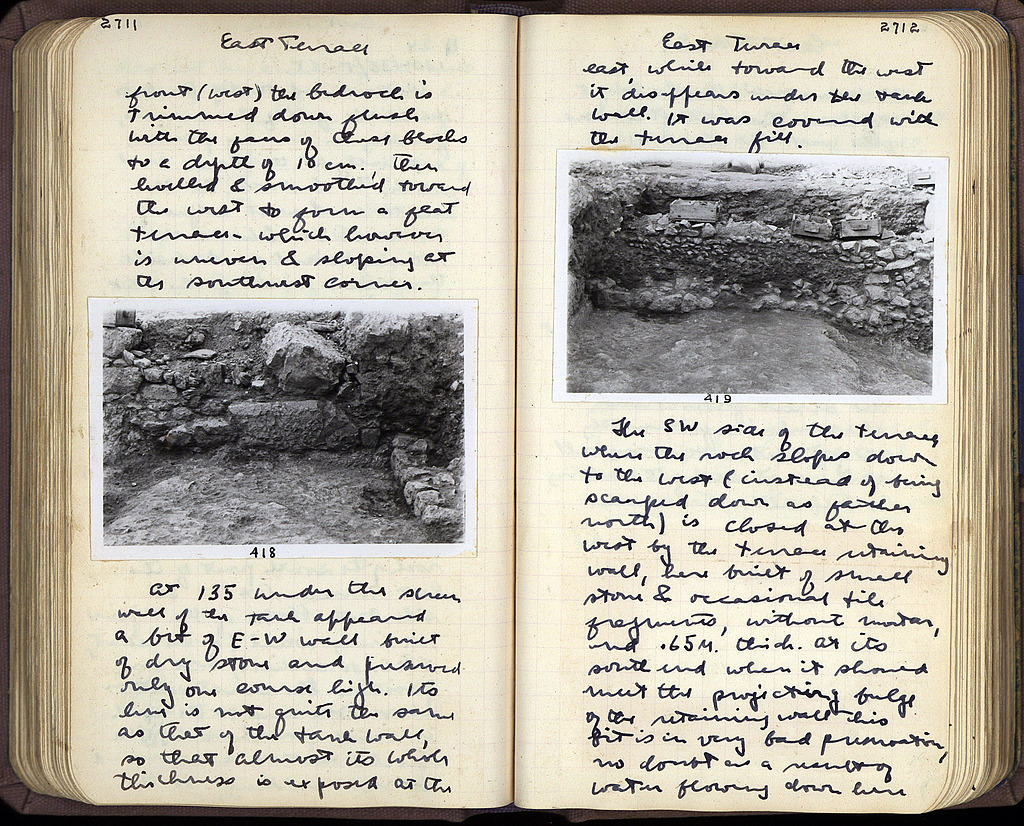 2711
East Terrace
front (west) the bedrock is
trimmed down flush
with the faces of these blocks
to a depth of 10 cm., then
levelled & smoothed toward
the west to form a flat
terrace - which however
is uneven & sloping at
the southwest corner.
418
At 135 under the
wall of the tank appeared
a bit of E-W wall built
of dry stone and preserved
only one course high. Its
line is not quite the same
as that of the tank wall,
so that almost its whole
thickness is exposed at the
2712
East Terrace
east, while toward the west
it disappears under the tank
wall. It was covered with
the terrace fill.
419
The SW side of the terrace
where the rock slopes down
to the west (instead of being
scarped down as farther
north) is closed at the
west by the terrace retaining
wall, here built of small
stone & occasional tile
fragments, without mortar,
and .65 M. thick. At its
south end where it should
meet the projecting bulge
of the retaining wall this
bit is in very bad preservation,
no doubt as a result of
water flowing down here